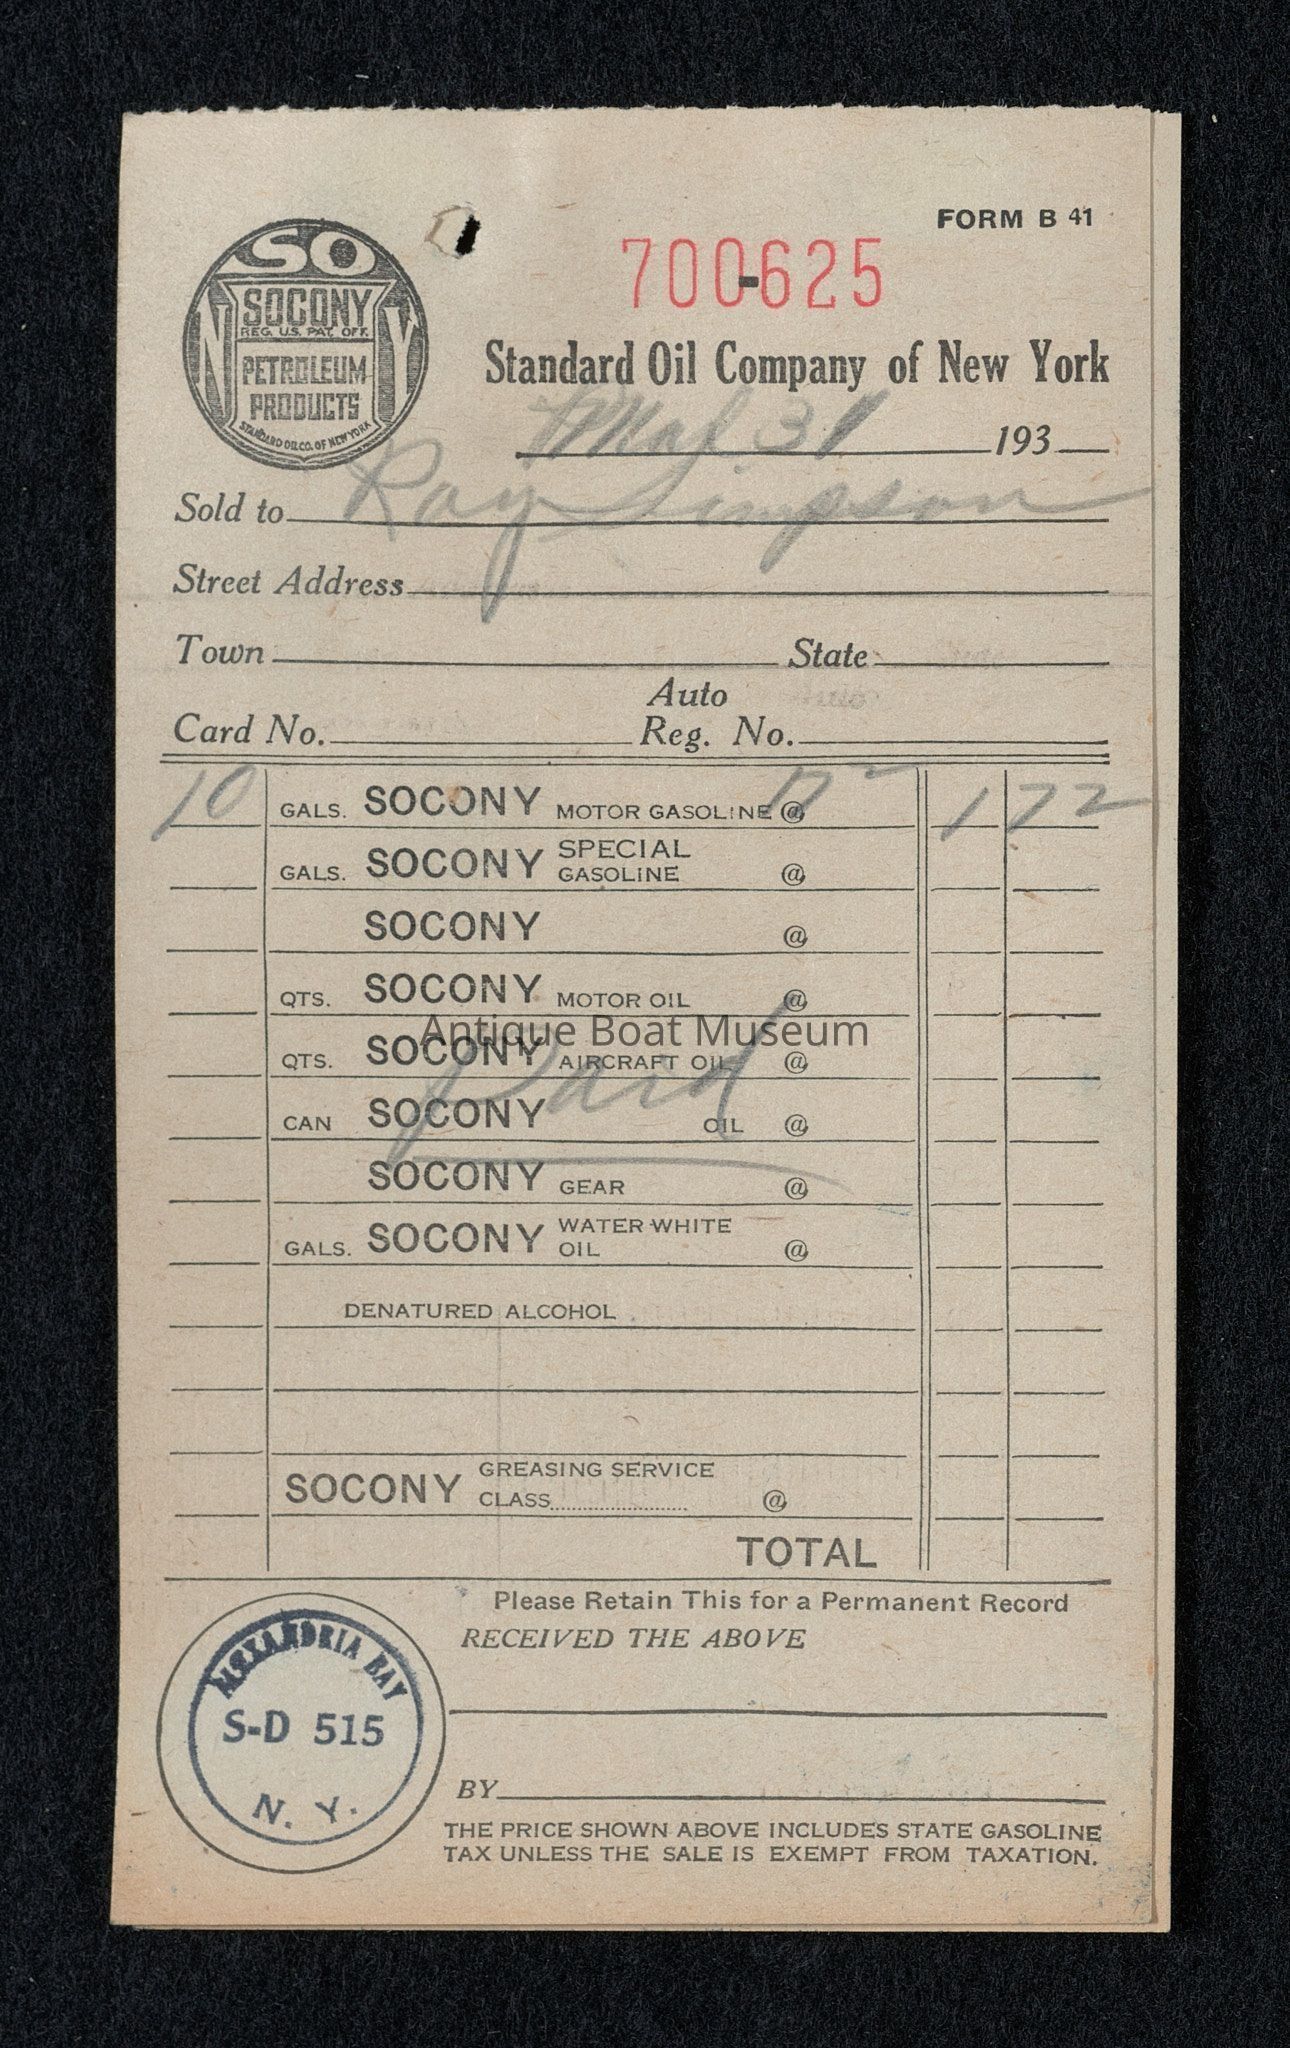 FORM B 41
700-625
SO
N Y
SOCONY
REG. U.S. PAT. OFF.
PETROLEUM
PRODUCTS
STANDARD OIL CO. OF NEW YORK
Standard Oil Company of New York
31 193
Sold to Ray Simpson
Street Address
Town State
Auto
Card No. Reg. No.
10 GALS. SOCONY MOTOR GASOLINE @ 17 2 1 72
GALS. SOCONY SPECIAL GASOLINE @
SOCONY @
QTS. SOCONY MOTOR OIL @
Antique Boat Museum
QTS. SOCONY AIRCRAFT OIL @
Paid
CAN SOCONY OIL @
SOCONY GEAR @
GALS. SOCONY WATER WHITE OIL @
DENATURED ALCOHOL
SOCONY GREASING SERVICE
CLASS @
TOTAL
Please Retain This for a Permanent Record
RECEIVED THE ABOVE
ALEXANDRIA BAY
S-D 515
N. Y.
BY
THE PRICE SHOWN ABOVE INCLUDES STATE GASOLINE
TAX UNLESS THE SALE IS EXEMPT FROM TAXATION.